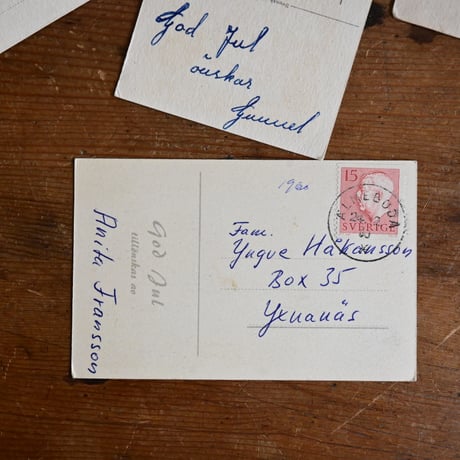 God Jul
önskar
Gunnel
1960
15
ALMEBODA
SVERIGE
Fam.
Yngve Håkansson
Box 35
Yxnanäs
God Jul
tillönskas av
Anita Fransson